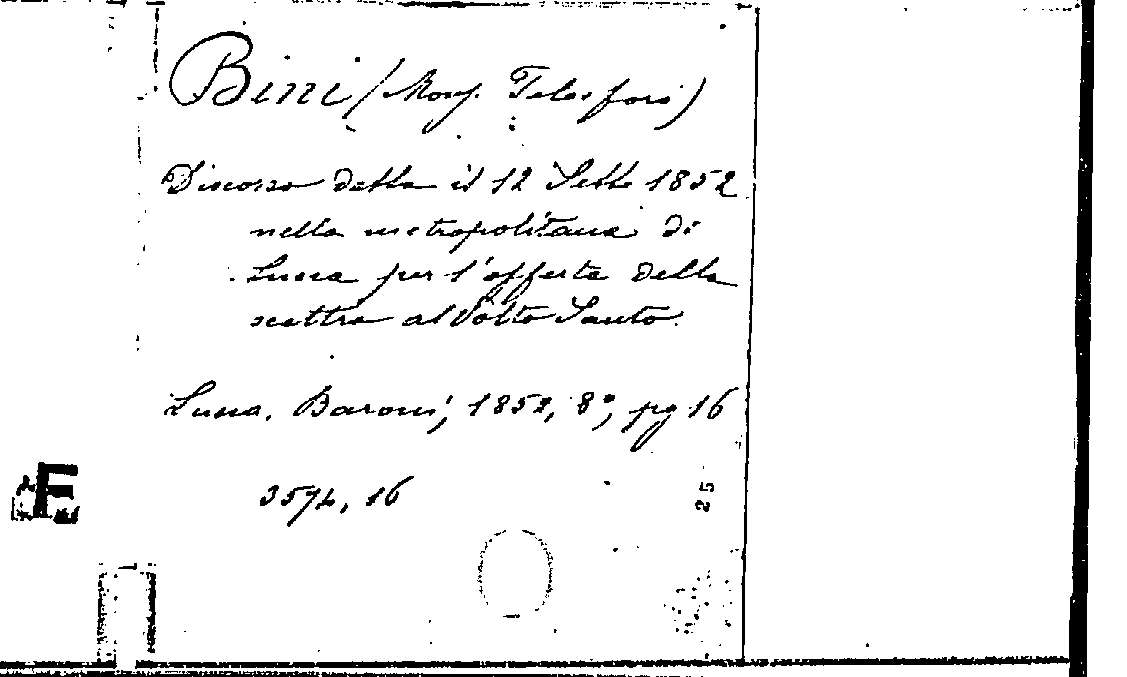 Bini (Mons. Telesforo)
Discorso detto il 12 Sette 1852
nella metropolitana di
Lucca per l'offerta dello
scettro al Volto Santo.
Lucca. Baroni, 1852, 8°, pg 16
3574, 16
25